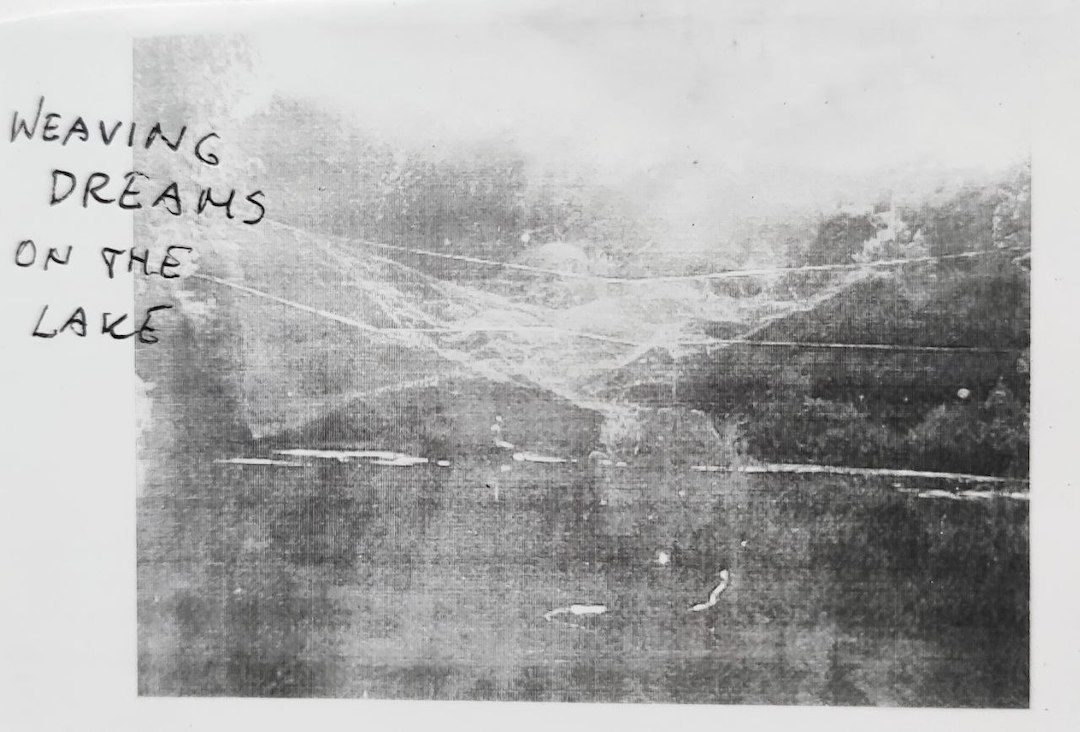 WEAVING
DREAMS
ON THE
LAKE